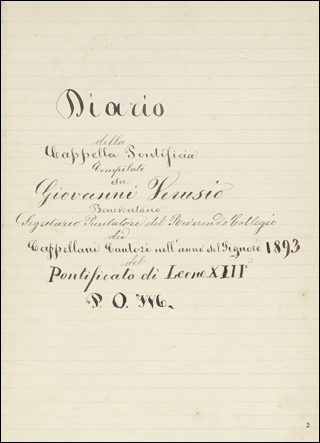 Diario
della
Cappella Pontificia
Compilato
da
Giovanni Verusio
Beneventano
Segretario Puntatore del Reverendo Collegio
dei
Cappellani Cantori nell'anno del Signore 1893
del
Pontificato di Leone XIII
P. O. M.
2